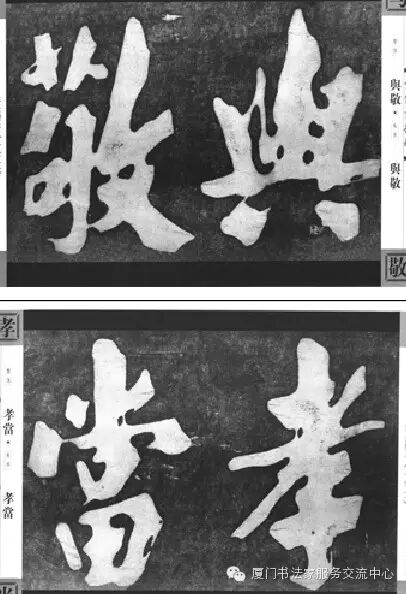 與敬
與敬
與敬
敬
孝當
孝
孝當
孝當
厦门书法家服务交流中心